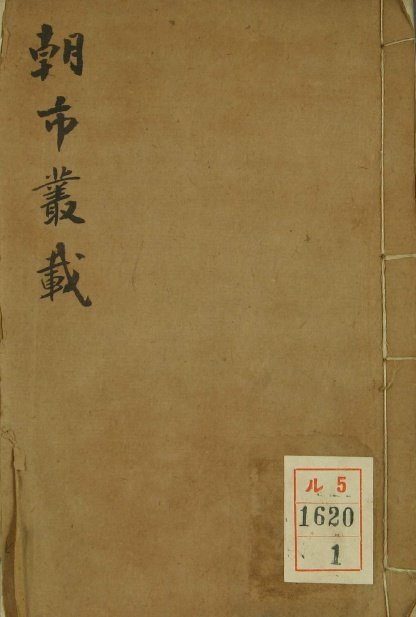 朝市叢載
ル 5
1620
1